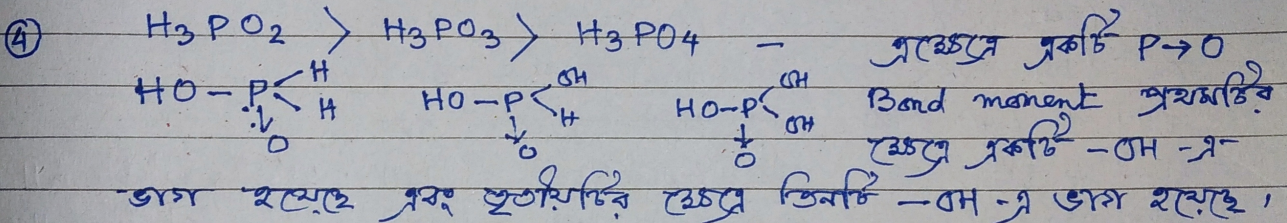 ④ H₃PO₂ > H₃PO₃ > H₃PO₄ — এক্ষেত্রে একটি P→O
HO–P<H H ↓ O HO–P<OH H ↓ O HO–P<OH OH ↓ O Bond moment প্রথমটির
ক্ষেত্রে একটি –OH –এ
ভাগ হয়েছে এবং তৃতীয়টির ক্ষেত্রে তিনটি –OH -এ ভাগ হয়েছে,